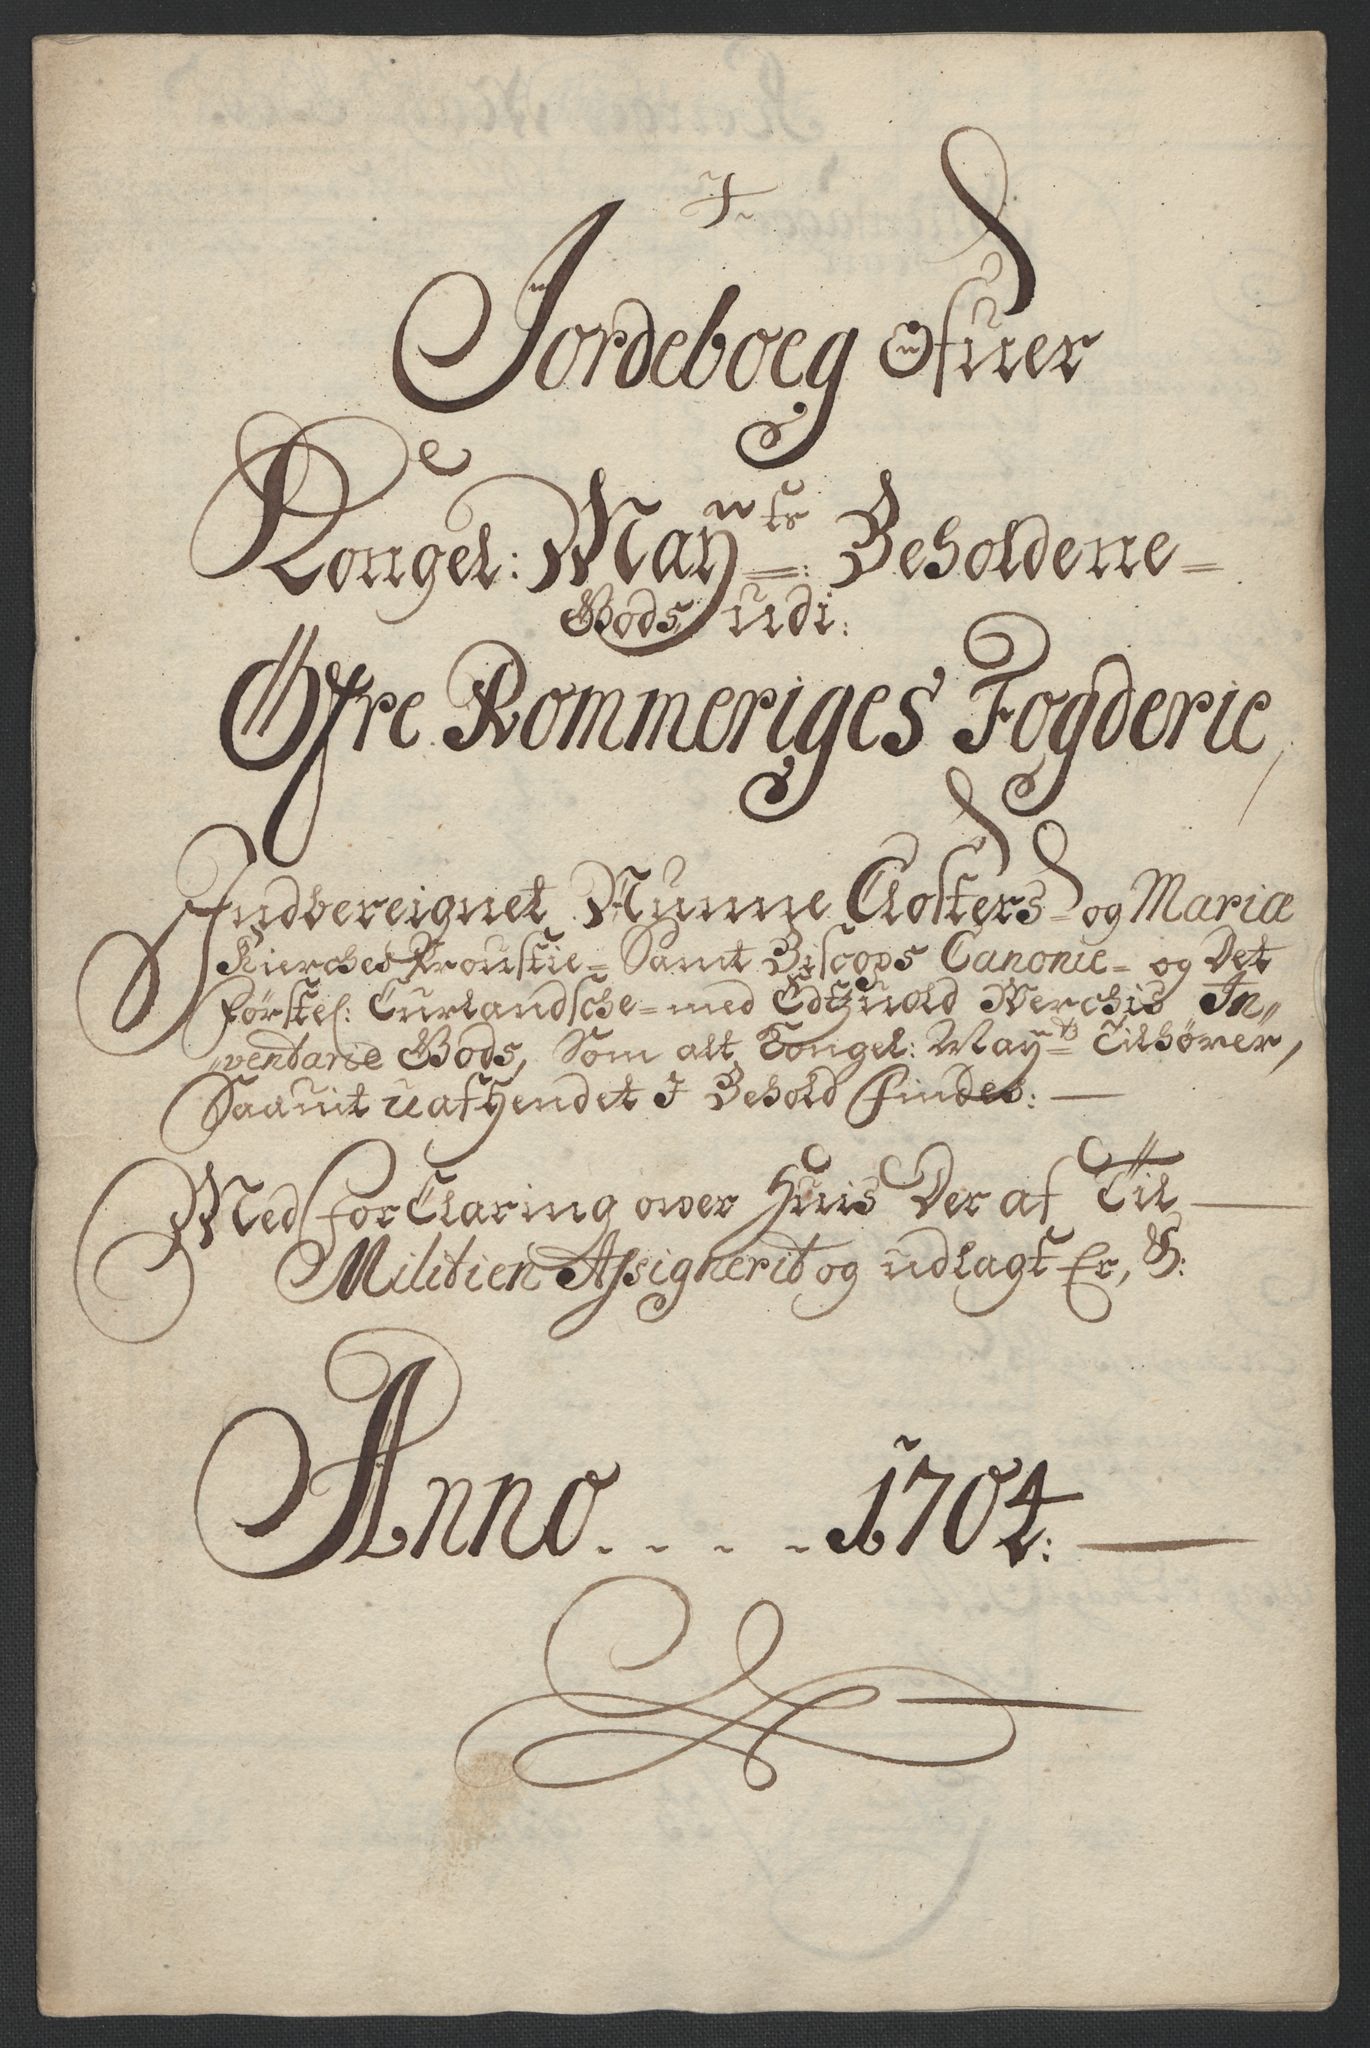 Jordeboeg Ofuer
Kongel: May:ts Beholdene=
Gods udi:
Öfre Rommeriges Fogderie
Indbereignet Nunne Closters= og Mariæ
Kierches Proustie= Samt Biscops Canonie= og Det
Førstel: Curlandsche= med Edtzuold Werchis In„
„ventarie Gods, Som alt Kongel: May:ts Tilhører,
Saauit uafhendet I Behold findes:
Med forClaring over Huis Der af Til
Militien Assignerit og udlagt Er,
Anno . . . . 1704: